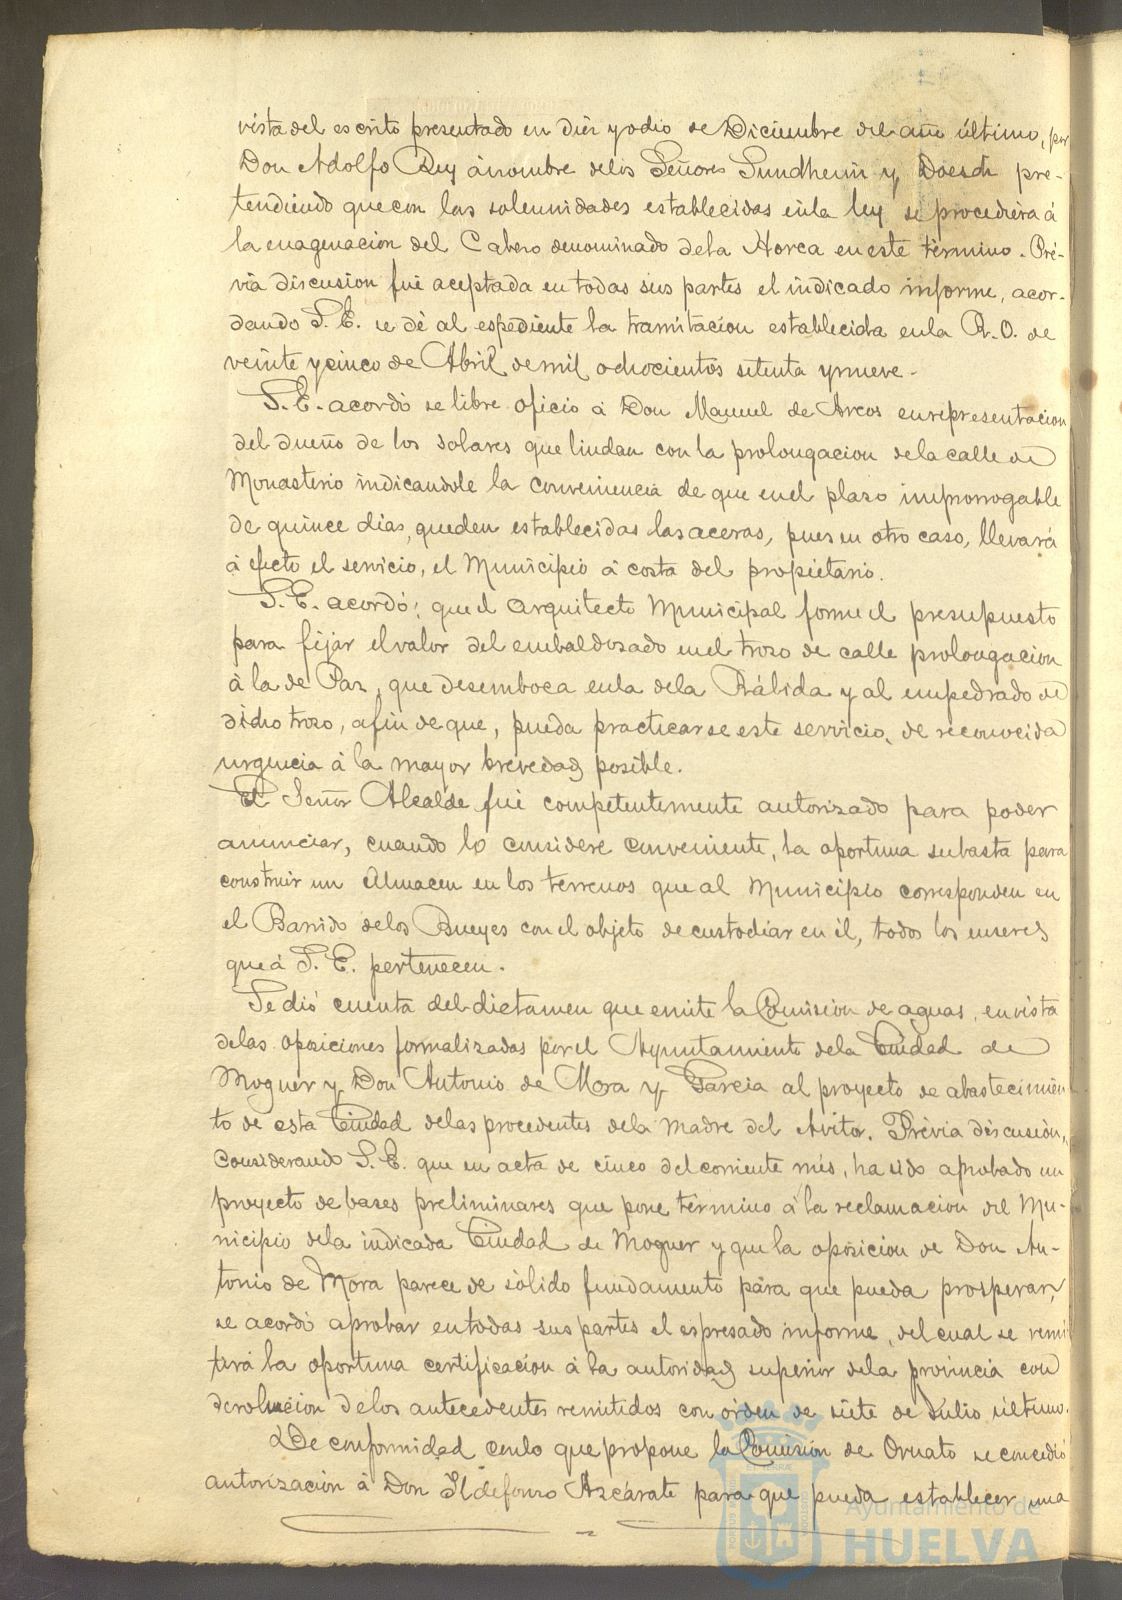 vista del escrito presentado en diez y ocho de Diciembre del año último, por
Don Adolfo Rey á nombre de los Señores Sundheim y Doesch pre-
tendiendo que con las solemnidades establecidas en la ley se procediera á
la enagenacion del Cabezo denominado de la Horca en este término. Pré-
via discusion fué aceptada en todas sus partes el indicado informe, acor-
dando S. E. se dé al espediente la tramitacion establecida en la R. O. de
veinte y cinco de Abril de mil ochocientos setenta y nueve.
S. E. acordó se libre oficio á Don Manuel de Arcos en representacion
del dueño de los solares que lindan con la prolongacion de la calle de
Monasterio indicandole la conveniencia de que en el plazo improrrogable
de quince dias, queden establecidas las aceras, pues en otro caso, llevará
á efecto el servicio, el Municipio á costa del propietario.
S. E. acordó; que el Arquitecto Municipal forme el presupuesto
para fijar el valor del embaldosado en el trozo de calle prolongacion
á la de Paz, que desemboca en la de la Rábida y al empedrado de
dicho trozo, afin de que, pueda practicarse este servicio, de reconocida
urgencia á la mayor brevedad posible.
El Señor Alcalde fué competentemente autorizado para poder
anunciar, cuando lo considere conveniente, la oportuna subasta para
construir un Almacen en los terrenos que al Municipio corresponden en
el Barrio de los Bueyes con el objeto de custodiar en él, todos los enseres
que á S. E. pertenecen.
Se dió cuenta del dictamen que emite la Comision de aguas, en vista
de las oposiciones formalizadas por el Ayuntamiento de la Ciudad de
Moguer y Don Antonio de Mora y Garcia al proyecto de abastecimien-
to de esta Ciudad de las procedentes de la Madre del Avitor. Prévia discusion,
considerando S. E. que en acta de cinco del corriente mes, ha sido aprobado un
proyecto de bases preliminares que pone término á la reclamacion del Mu-
nicipio de la indicada Ciudad de Moguer y que la oposicion de Don An-
tonio de Mora parece de sólido fundamento para que pueda prosperar,
se acordó aprobar en todas sus partes el espresado informe, del cual se remi
tirá la oportuna certificacion á la autoridad superior de la provincia con
devolucion de los antecedentes remitidos con órden de siete de Julio último.
De conformidad con lo que propone la Comision de Ornato se concedió
autorizacion á Don Ildefonso Azcárate para que pueda establecer una
Ayuntamiento de
HUELVA